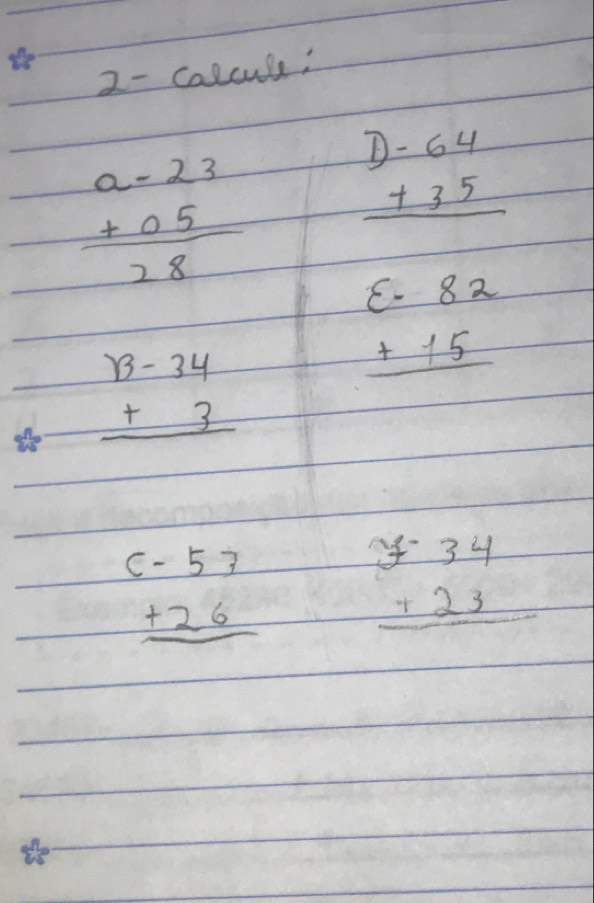 2- Calcule:
a- 23
+ 05
28
B- 34
+ 3
C- 53
+26
D- 64
+ 35
E- 82
+ 15
F- 34
+ 23